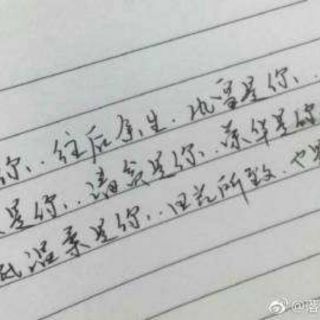 你..往后余生.风雪是你..
是你..清贫是你..荣华是你
底温柔是你..目光所致.也是
@洛